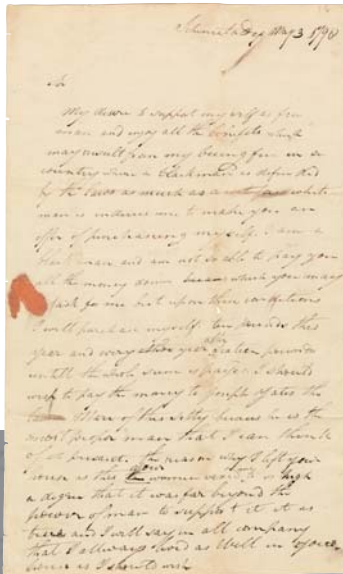 Schenectady May 3 1798
Sir
My desire to support my self as free
man and enjoy all the benefits which
may result from my being free in a
country where a Blackman is defended
by the laws as much as a white
man is induces me to make you an
offer of purchasing myself. I am a
Black man and am not able to pay you
all the money down which you may
ask for me but upon these conditions
I will purchase myself. Ten pounds this
year and every year after fifteen pounds
untill the whole sum is payed. I should
wish to pay the money to Joseph Yates the
Mare of this City because he is the
most proper man that I can think
of at present. the reason why I left your
house is this your woman vexed me to so high
a degree that it was far beyond the
power of man to support it it is
true and I will say in all company
that I allways lived as Well in your
house as I should wish